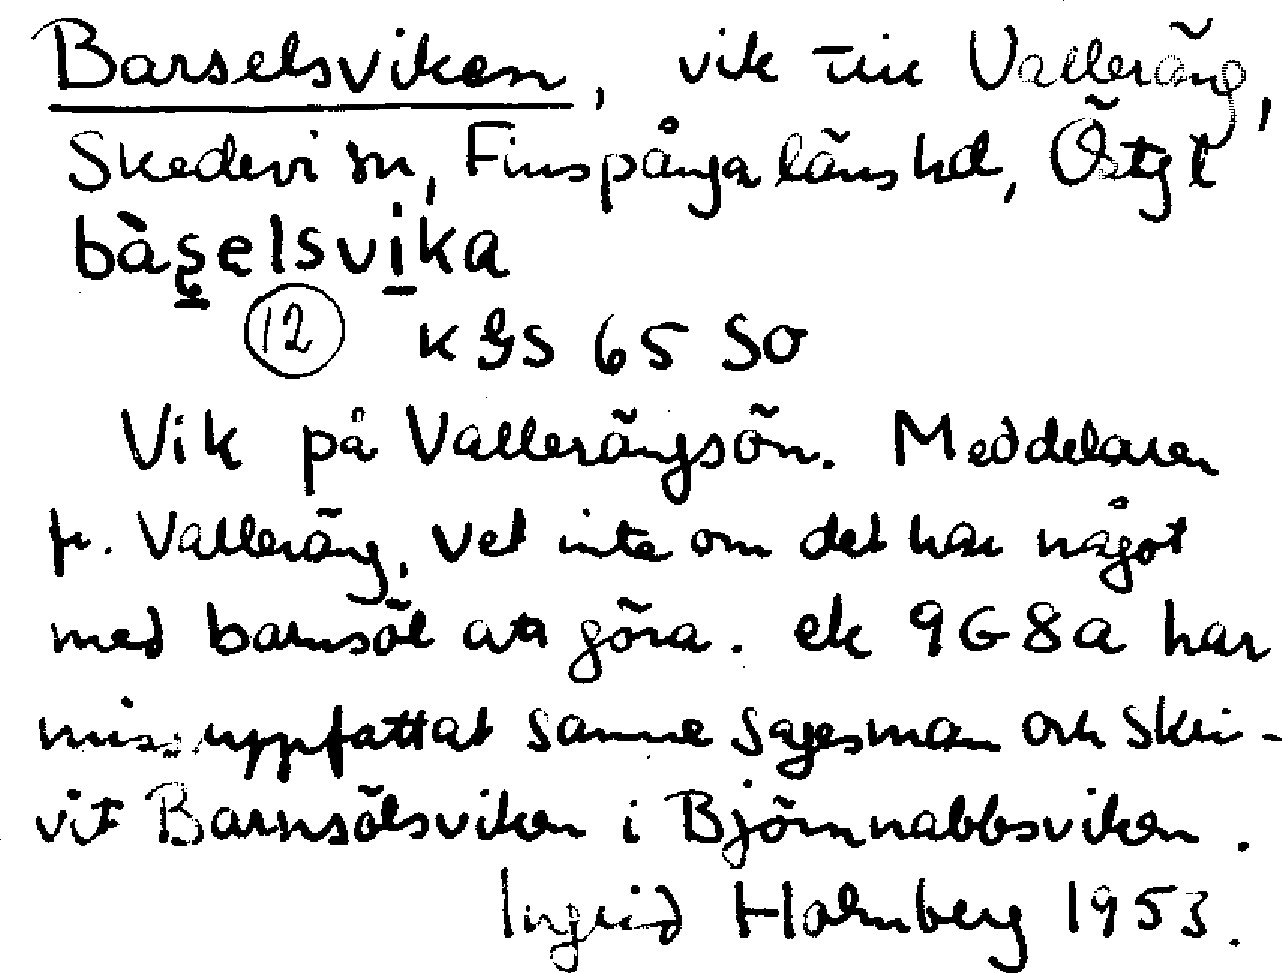 Barselsviken, vik till Valleräng,
Skedevi sn, Finspånga läns hd, Östgl
bàs̱elsvi̱ka
(12) K GS 65 SO
Vik på Vallerängsön. Meddelaren
fr. Valleräng, vet inte om det har något
med barnsöl att göra. ek 9G8a har
missuppfattat samme sagesman och skri-
vit Barnsölsviken i Björnnabbsviken.
Ingrid Holmberg 1953.